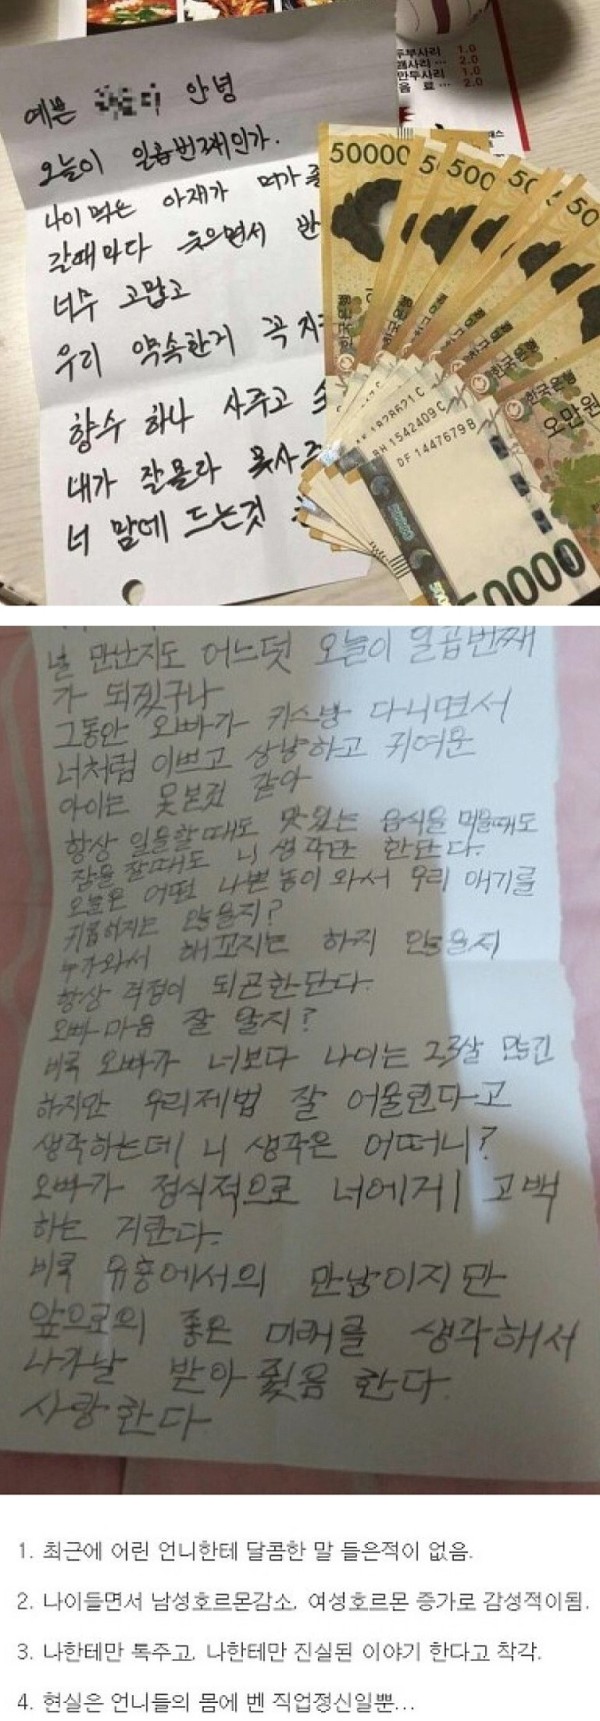 두부사리 1.0
2.0
만두사리 1.0
음 료 ··· 2.0
예쁜 안녕
오늘이 일곱번째인가.
나이 먹은 아재가 머가 좋
갈때마다 웃으면서 반
너무 고맙고
우리 약속한거 꼭 지
향수 하나 사주고
내가 잘몰라 못사
너 맘에 드는것
50000
한국은행
한국은행
한국은행
오만원
BH 1542409 C
DF 1447679 B
50000
널 만난지도 어느덧 오늘이 일곱번째
가 되겠구나
그동안 오빠가 키스방 다니면서
너처럼 이쁘고 상냥하고 귀여운
아이는 못본것 같아
항상 일을할때도 맛있는 음식을 먹을때도
잠을 잘때도 니 생각만 한단다.
오늘은 어떤 나쁜 놈이 와서 우리 애기를
괴롭히지는 않을지?
누가와서 해꼬지는 하지 않을지
항상 걱정이 되곤한단다.
오빠 마음 잘 알지?
비록 오빠가 너보다 나이는 23살 많긴
하지만 우리제법 잘 어울린다고
생각하는데 니 생각은 어떠니?
오빠가 정식적으로 너에게 고백
하는 거란다.
비록 유흥에서의 만남이지만
앞으로의 좋은 미래를 생각해서
나가날 받아 줬음 한다.
사랑한다
1. 최근에 어린 언니한테 달콤한 말 들은적이 없음.
2. 나이들면서 남성호르몬감소, 여성호르몬 증가로 감성적이됨.
3. 나한테만 톡주고, 나한테만 진실된 이야기 한다고 착각.
4. 현실은 언니들의 몸에 벤 직업정신일뿐...